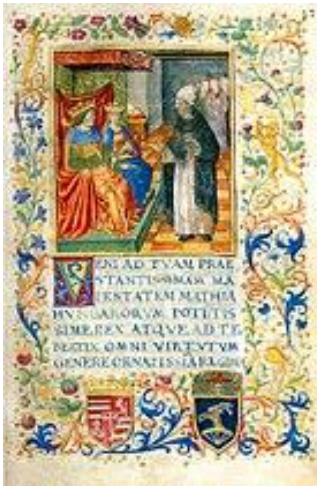 VENI AD TVAM PRAE
STANTISSIMAM MA
IESTATEM MATHIA
HVNGARORVM POTETIS
SIME REX ATQVE AD TE
OMNI VIRTVTVM
GENERE